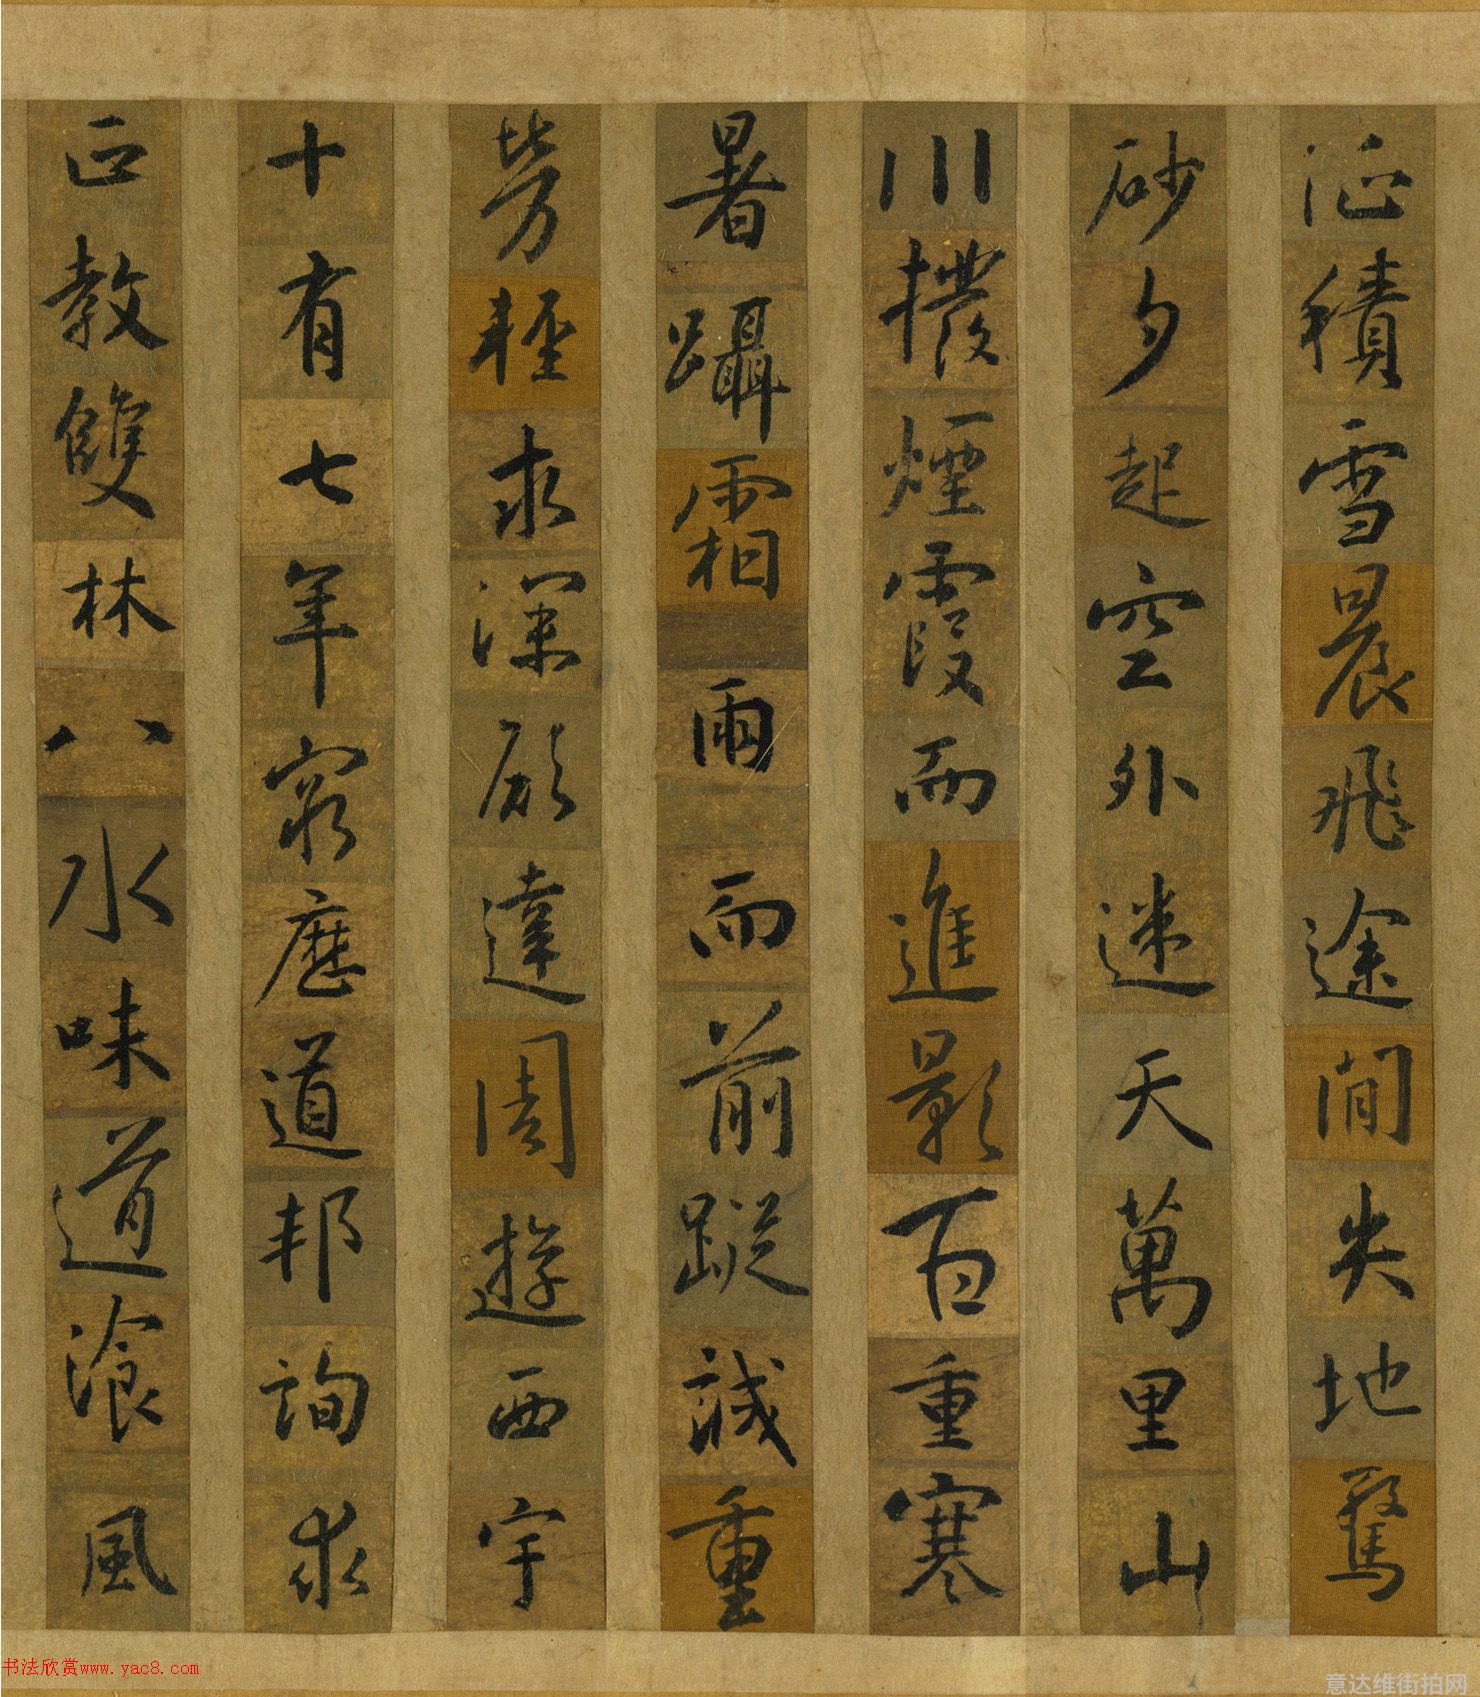 征積雪晨飛途間失地驚
砂夕起空外迷天萬里山
川撥煙霞而進影百重寒
暑躡霜雨而前蹤誠重
勞輕求深願達周遊西宇
十有七年窮歷道邦詢求
正教雙林八水味道湌風
书法欣赏www.yac8.com
意达维街拍网